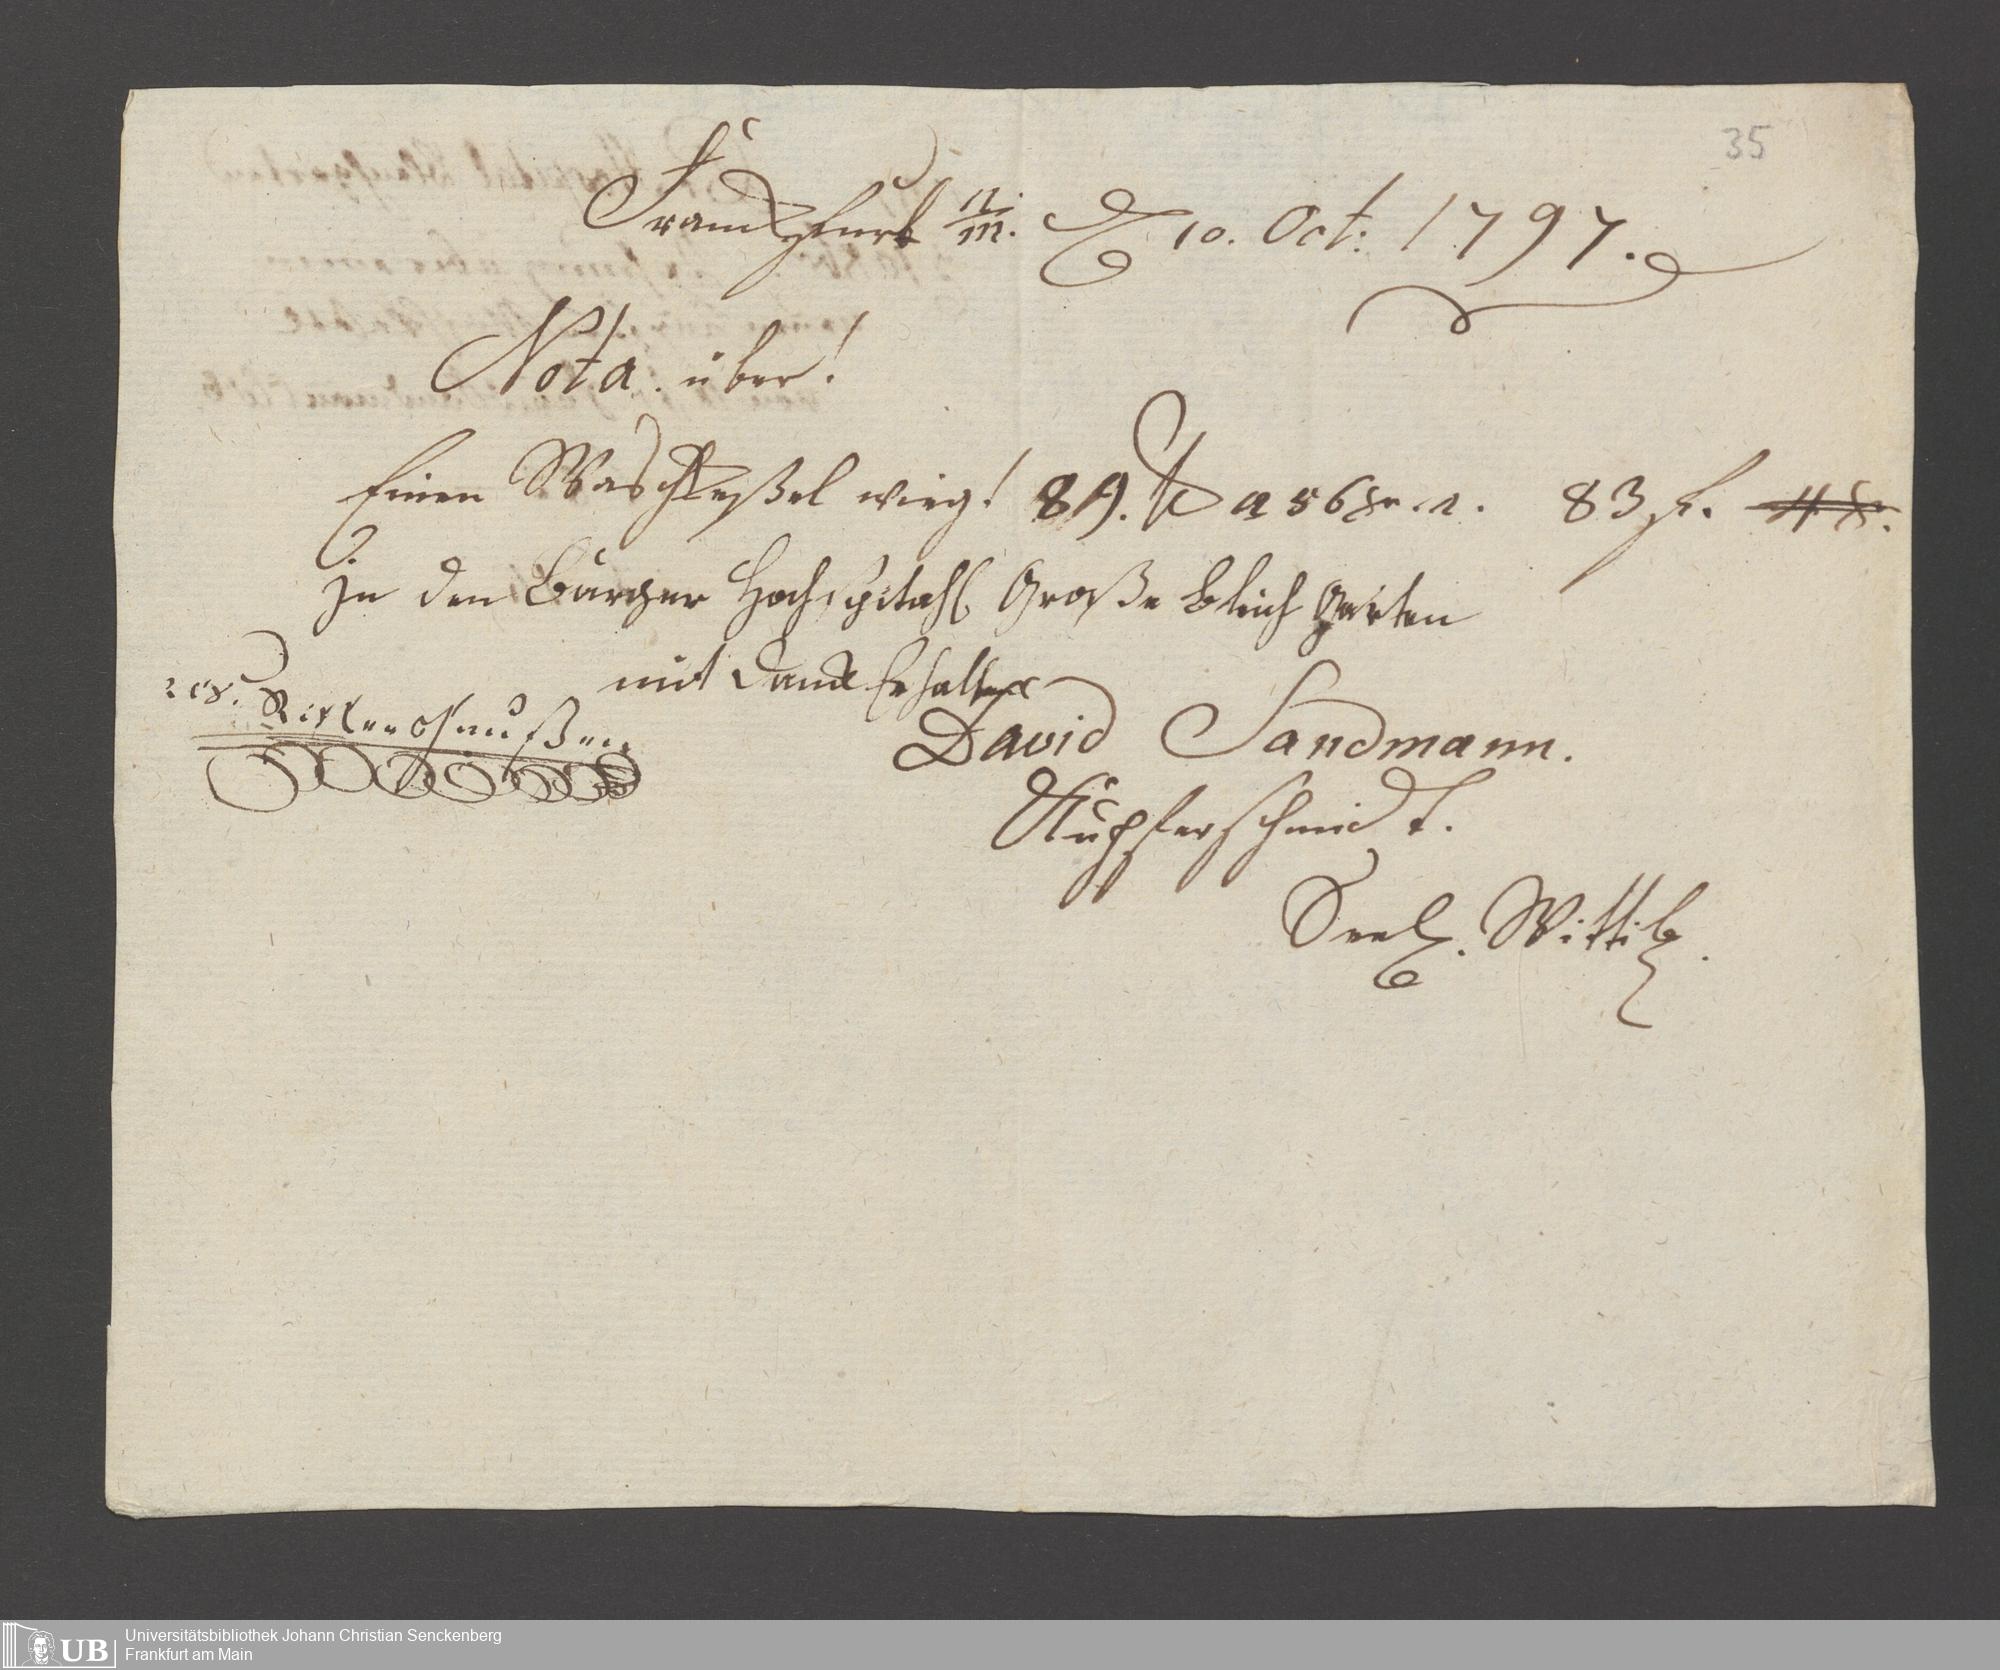 35
Franckfurt a/m. D 10. Oct: 1797.
Nota. über!
Einen Waschkeßel wieg! 89. ℔ a 56 xr. 83 f.
In den Bürger Hochspitahl Große bleich garten
mit danck Erhalten
David Sandmann.
Kupferschmidt.
Seel. Wittib.
UB
Universitätsbibliothek Johann Christian Senckenberg
Frankfurt am Main